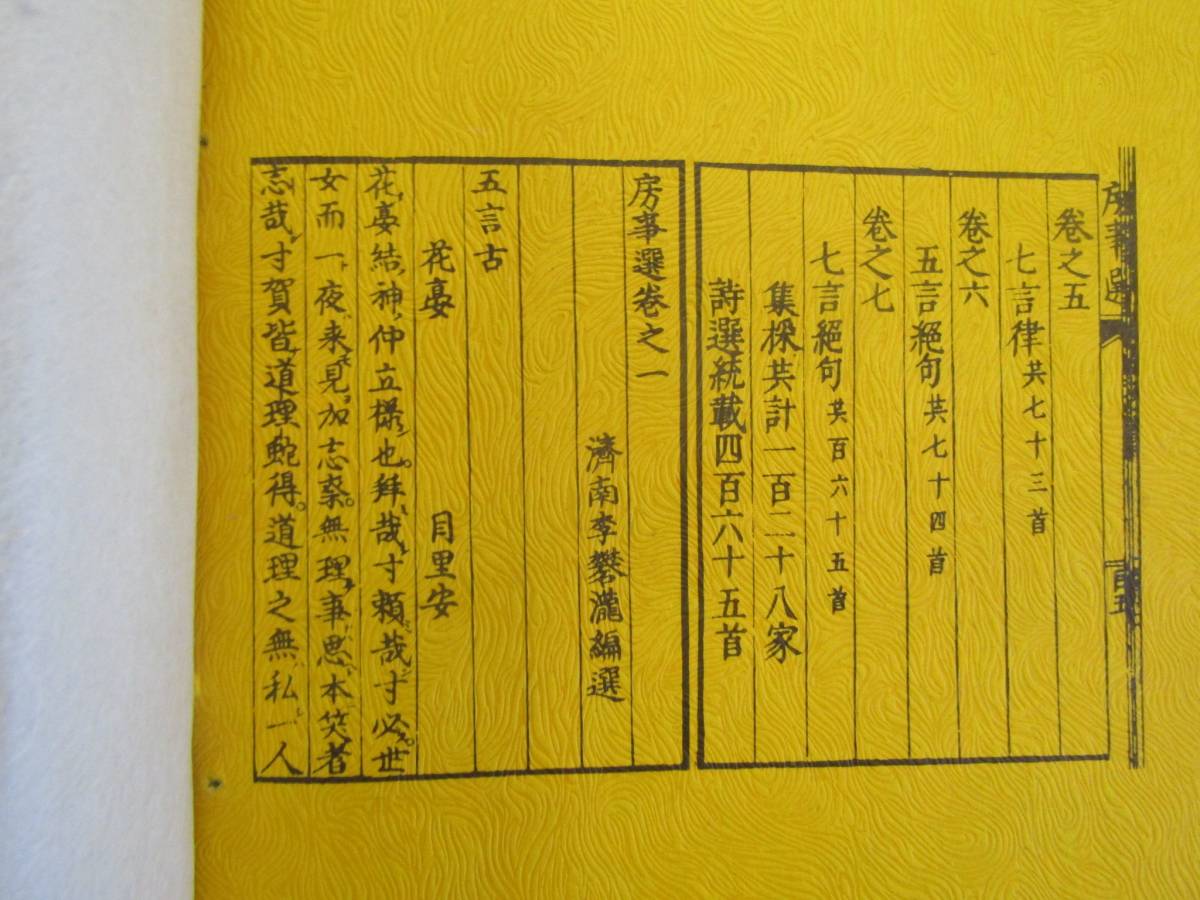 房事選
卷之五
七言律共七十三首
卷之六
五言絕句共七十四首
卷之七
七言絕句共百六十五首
集採共計一百二十八家
詩選統載四百六十五首
房事選卷之一
濟南李攀瀧編選
五言古
花臺 月里安
花臺結神仲立様也拜哉寸賴哉寸必世
女而一夜来見加志察無理事思本笑者
志哉寸賀皆道理蛇得道理之無私一人